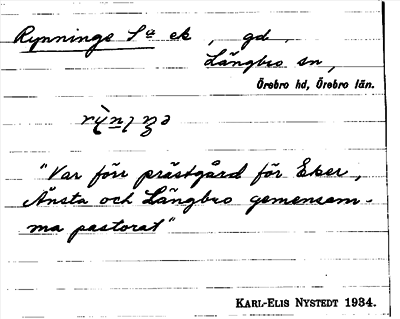 Rynninge Sa ek, gd,
Längbro sn,
Örebro hd, Örebro län.
"Var förr prästgård för Eker,
Ånsta och Längbro gemensam-
ma pastorat"
KARL-ELIS NYSTEDT 1934.